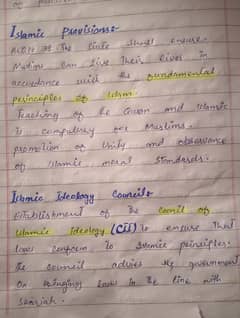 Islamic Provisions:-
of the State shall ensure.
Muslims can live their lives in
accordance with the fundamental
perinciples of Islam.
Teaching of the Quran and Islamic
is compulsry for Muslims.
promotion of Unity and observance
of Islamic moral Standards.
Islamic Ideology Council:-
Establishment of the Council of
Islamic Ideology (CII) to ensure that
laws conform to Islamic principles.
the Council advies the government
on bringing laws in the line with
Shariah.